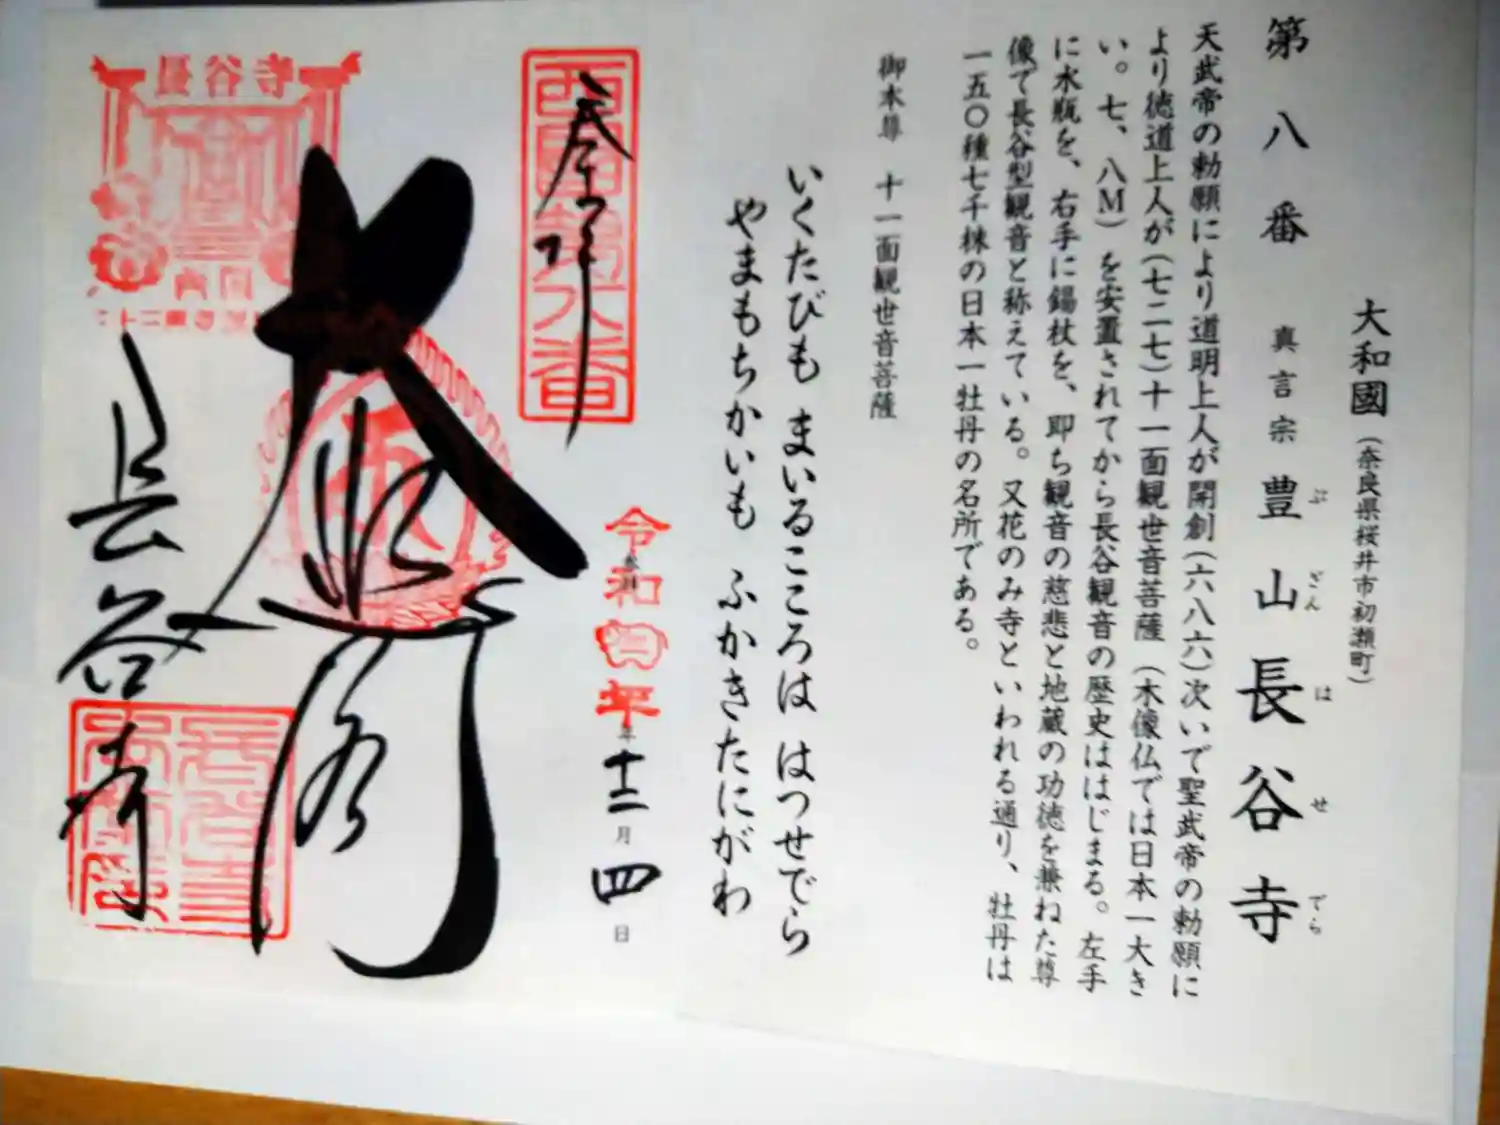 大和國（奈良県桜井市初瀬町）
第八番 真言宗 豊山長谷寺
ぶざん はせでら
天武帝の勅願により道明上人が開創(六八六)次いで聖武帝の勅願に
より徳道上人が(七二七)十一面観世音菩薩（木像仏では日本一大き
い。七、八M）を安置されてから長谷観音の歴史ははじまる。左手
に水瓶を、右手に錫杖を、即ち観音の慈悲と地蔵の功徳を兼ねた尊
像で長谷型観音と称えている。又花のみ寺といわれる通り、牡丹は
一五〇種七千株の日本一牡丹の名所である。
御本尊 十一面観世音菩薩
いくたびも まいるこころは はつせでら
やまもちかいも ふかきたにがわ
令和四年
年十二月四日
奉拝
西国第八番
大悲閣
長谷寺
長谷寺